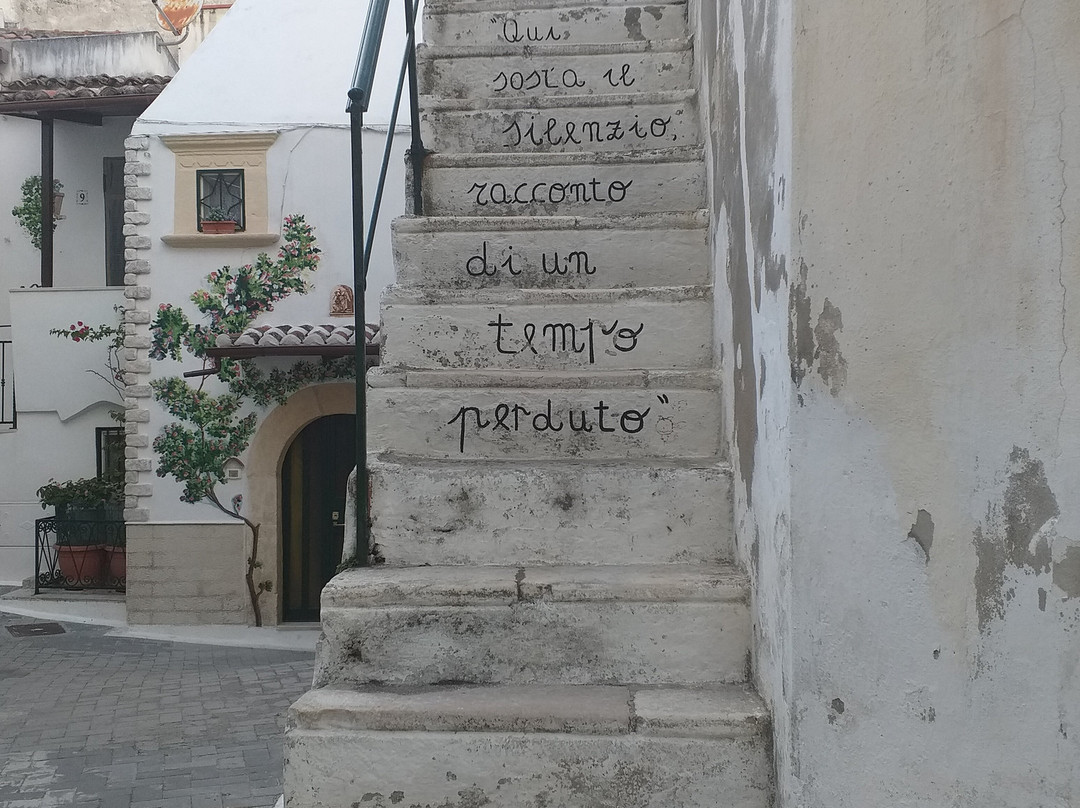 "Qui
sosta il
silenzio,
racconto
di un
tempo
perduto"
9